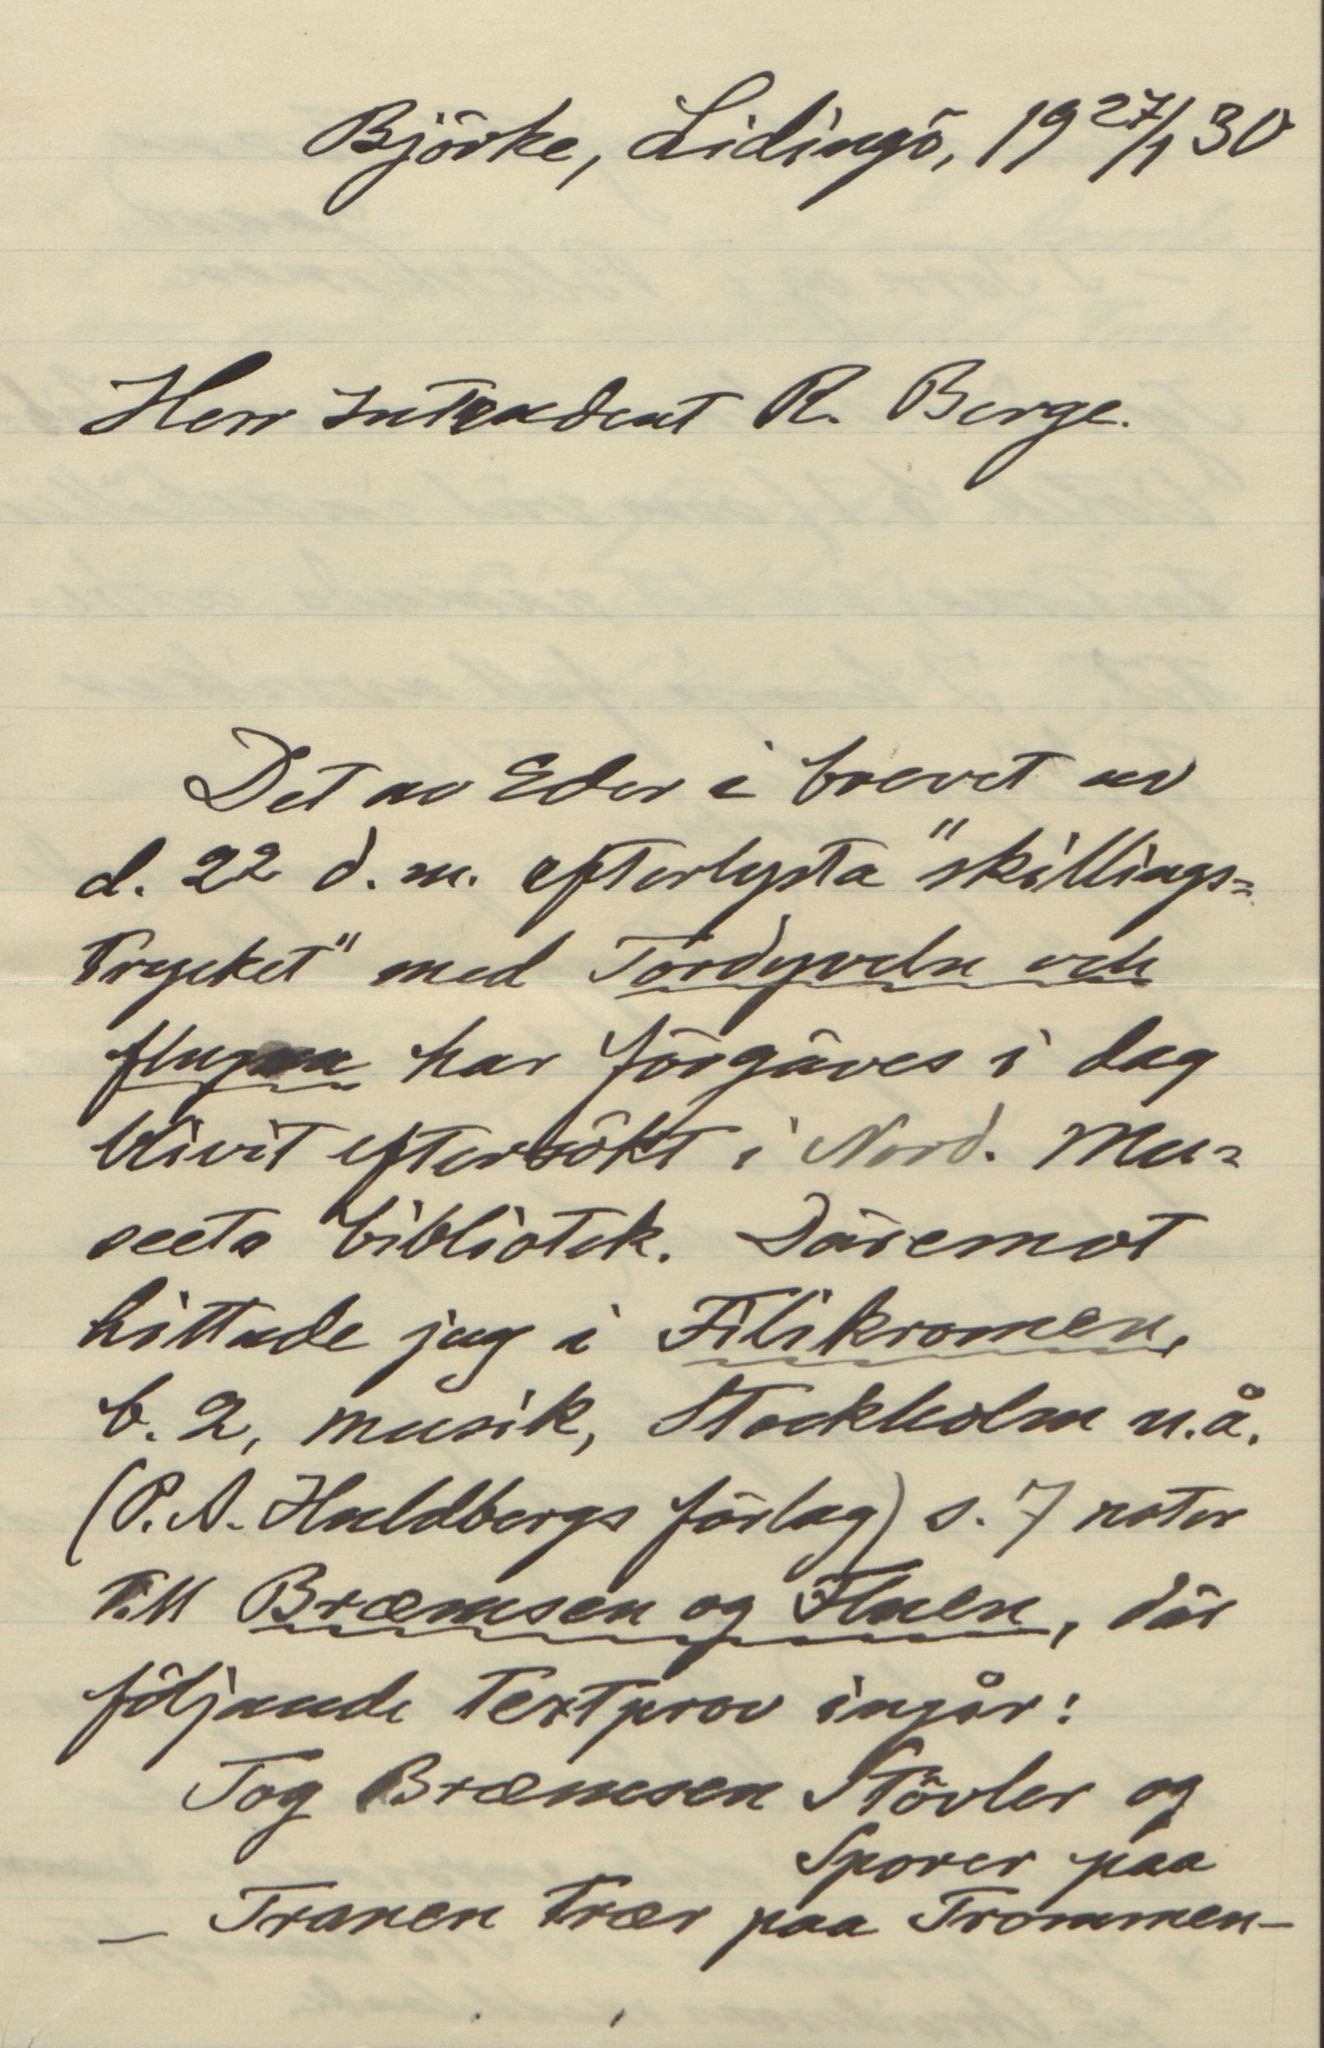 Björke, Lidingö, 19 27/1 30
Herr Intendent R. Berge.
Det av Eder i brevet av
d. 22 d. m. efterlysta "skillings-
trycket" med Tordyveln och
flugan har förgäves i dag
blivit eftersökt i Nord. Mu-
seets bibliotek. Däremot
hittade jag i Filikromen,
b. 2, musik, Stockholm u.å.
(P. A. Huldbergs förlag) s. 7 noter
till Bræmsen og Fluen, där
följande textprov ingår:
Tog Bræmsen Stövler og
Sporer paa
— Tranen Trær paa Trommen —